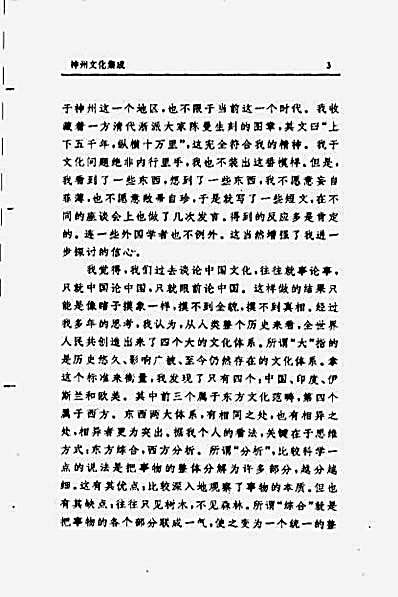 神州文化集成 3
于神州这一个地区，也不限于当前这一个时代。我收
藏着一方清代浙派大家陈曼生刻的图章，其文曰“上
下五千年，纵横十万里”，这完全符合我的精神。我于
文化问题绝非内行里手，我也不装出这番模样。但是，
我看到了一些东西，想到了一些东西，我不愿意妄自
菲薄，也不愿意敝帚自珍，于是就写了一些短文，在不
同的座谈会上也做了几次发言。得到的反应多是肯定
的。连一些外国学者也不例外。这当然增强了我进一
步探讨的信心。
我觉得，我们过去谈论中国文化，往往就事论事，
只就中国论中国，只就眼前论中国。这样做的结果只
能是像瞎子摸象一样，摸不到全貌，摸不到真相。经过
我多年的思考，我认为，从人类整个历史来看，全世界
人民共创造出来了四个大的文化体系。所谓“大”指的
是历史悠久、影响广被、至今仍然存在的文化体系。拿
这个标准来衡量，我发现了只有四个：中国、印度、伊
斯兰和欧美。其中前三个属于东方文化范畴，第四个
属于西方。东西两大体系，有相同之处，也有相异之
处，相异者更为突出。据我个人的看法，关键在于思维
方式：东方综合，西方分析。所谓“分析”，比较科学一
点的说法是把事物的整体分解为许多部分，越分越
细。这有其优点：比较深入地观察了事物的本质。但也
有其缺点：往往只见树木，不见森林。所谓“综合”就是
把事物的各个部分联成一气，使之变为一个统一的整